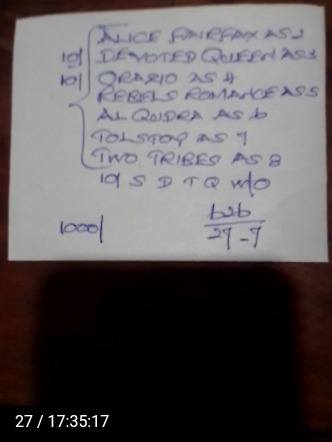 ALICE FAIRFAX AS 2
10/ DEVOTED QUEEN AS 3
10/ ORAZIO AS 4
REBELS ROMANCE AS 5
AL QUDRA AS 6
TOLSTOY AS 7
TWO TRIBES AS 8
10/ S D T Q W/O
1000/
b2b
27-7
27 / 17:35:17